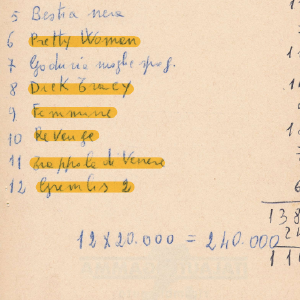 5 Bestia nera
6 Pretty Woman
7 Goduria moglie spog.
8 Dick Tracy
9 Femmine
10 Revenge
11 Trappola di Venere
12 Gremlis 2
12 x 20.000 = 240.000
138
24
11